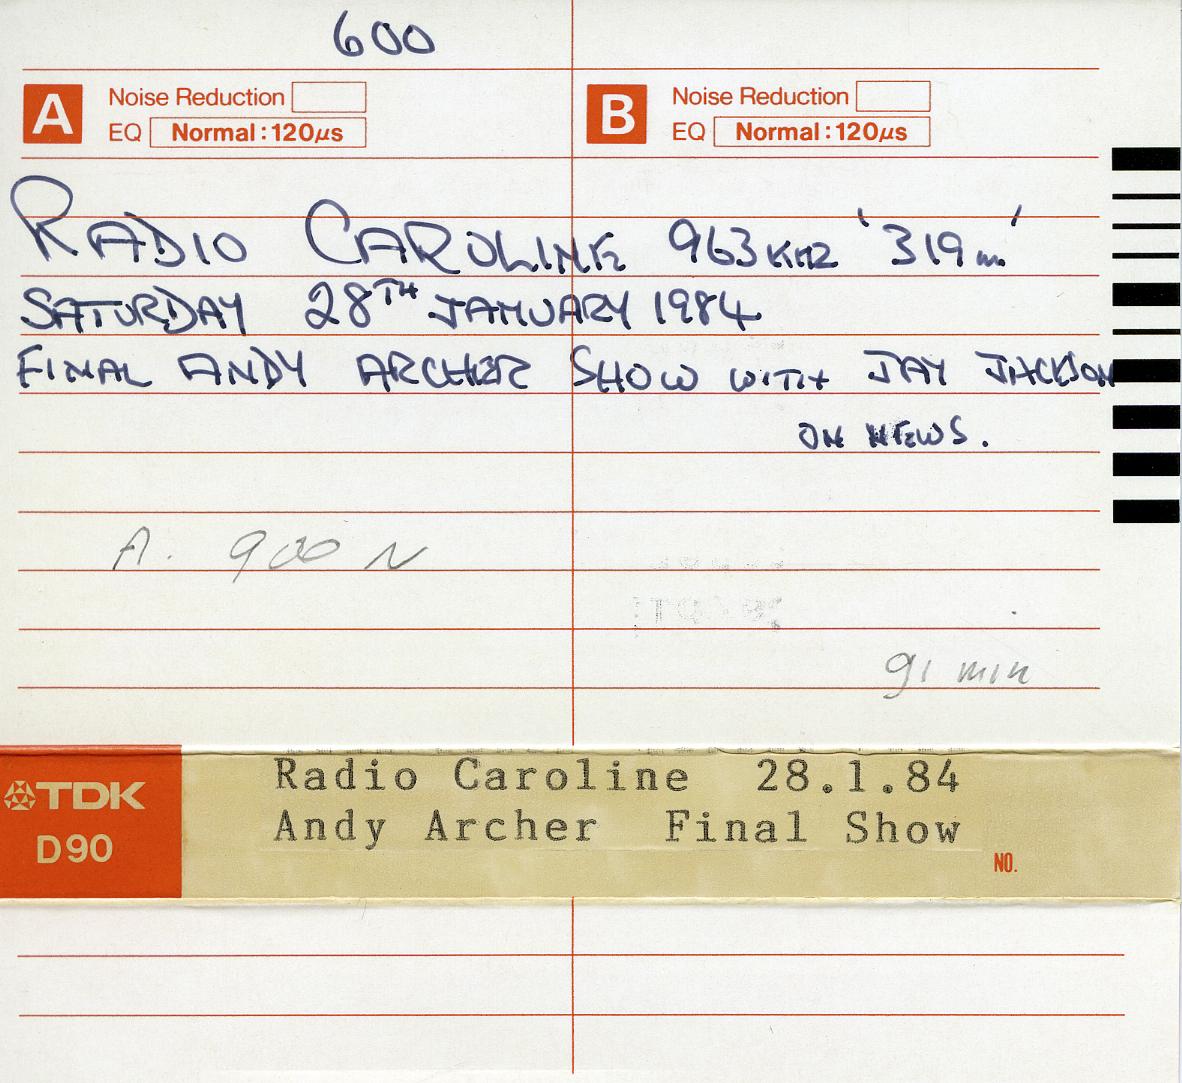 600
A Noise Reduction B Noise Reduction
EQ Normal:120µs EQ Normal:120µs
RADIO CAROLINE 963 KHZ '319m'
SATURDAY 28TH JANUARY 1984
FINAL ANDY ARCHER SHOW WITH JAY JACKSON
ON NEWS.
A. 900 N
91 min
TDK Radio Caroline 28.1.84
D90 Andy Archer Final Show
NO.